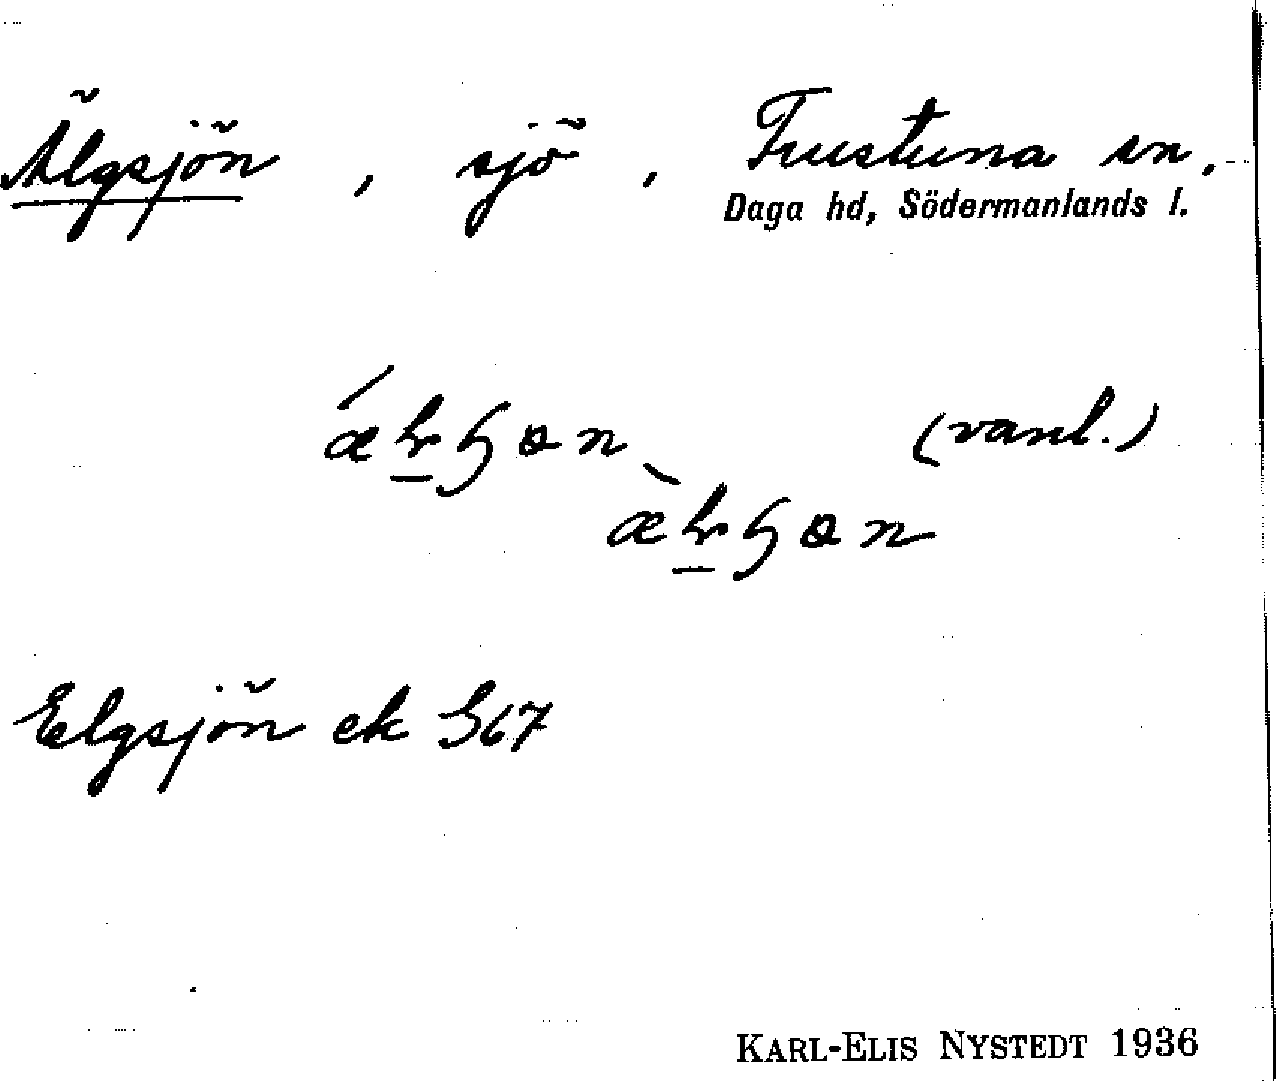 Älgsjön, sjö, Frustuna sn.
Daga hd, Södermanlands l.
(vanl.)
Elgsjön ek S67
KARL-ELIS NYSTEDT 1936